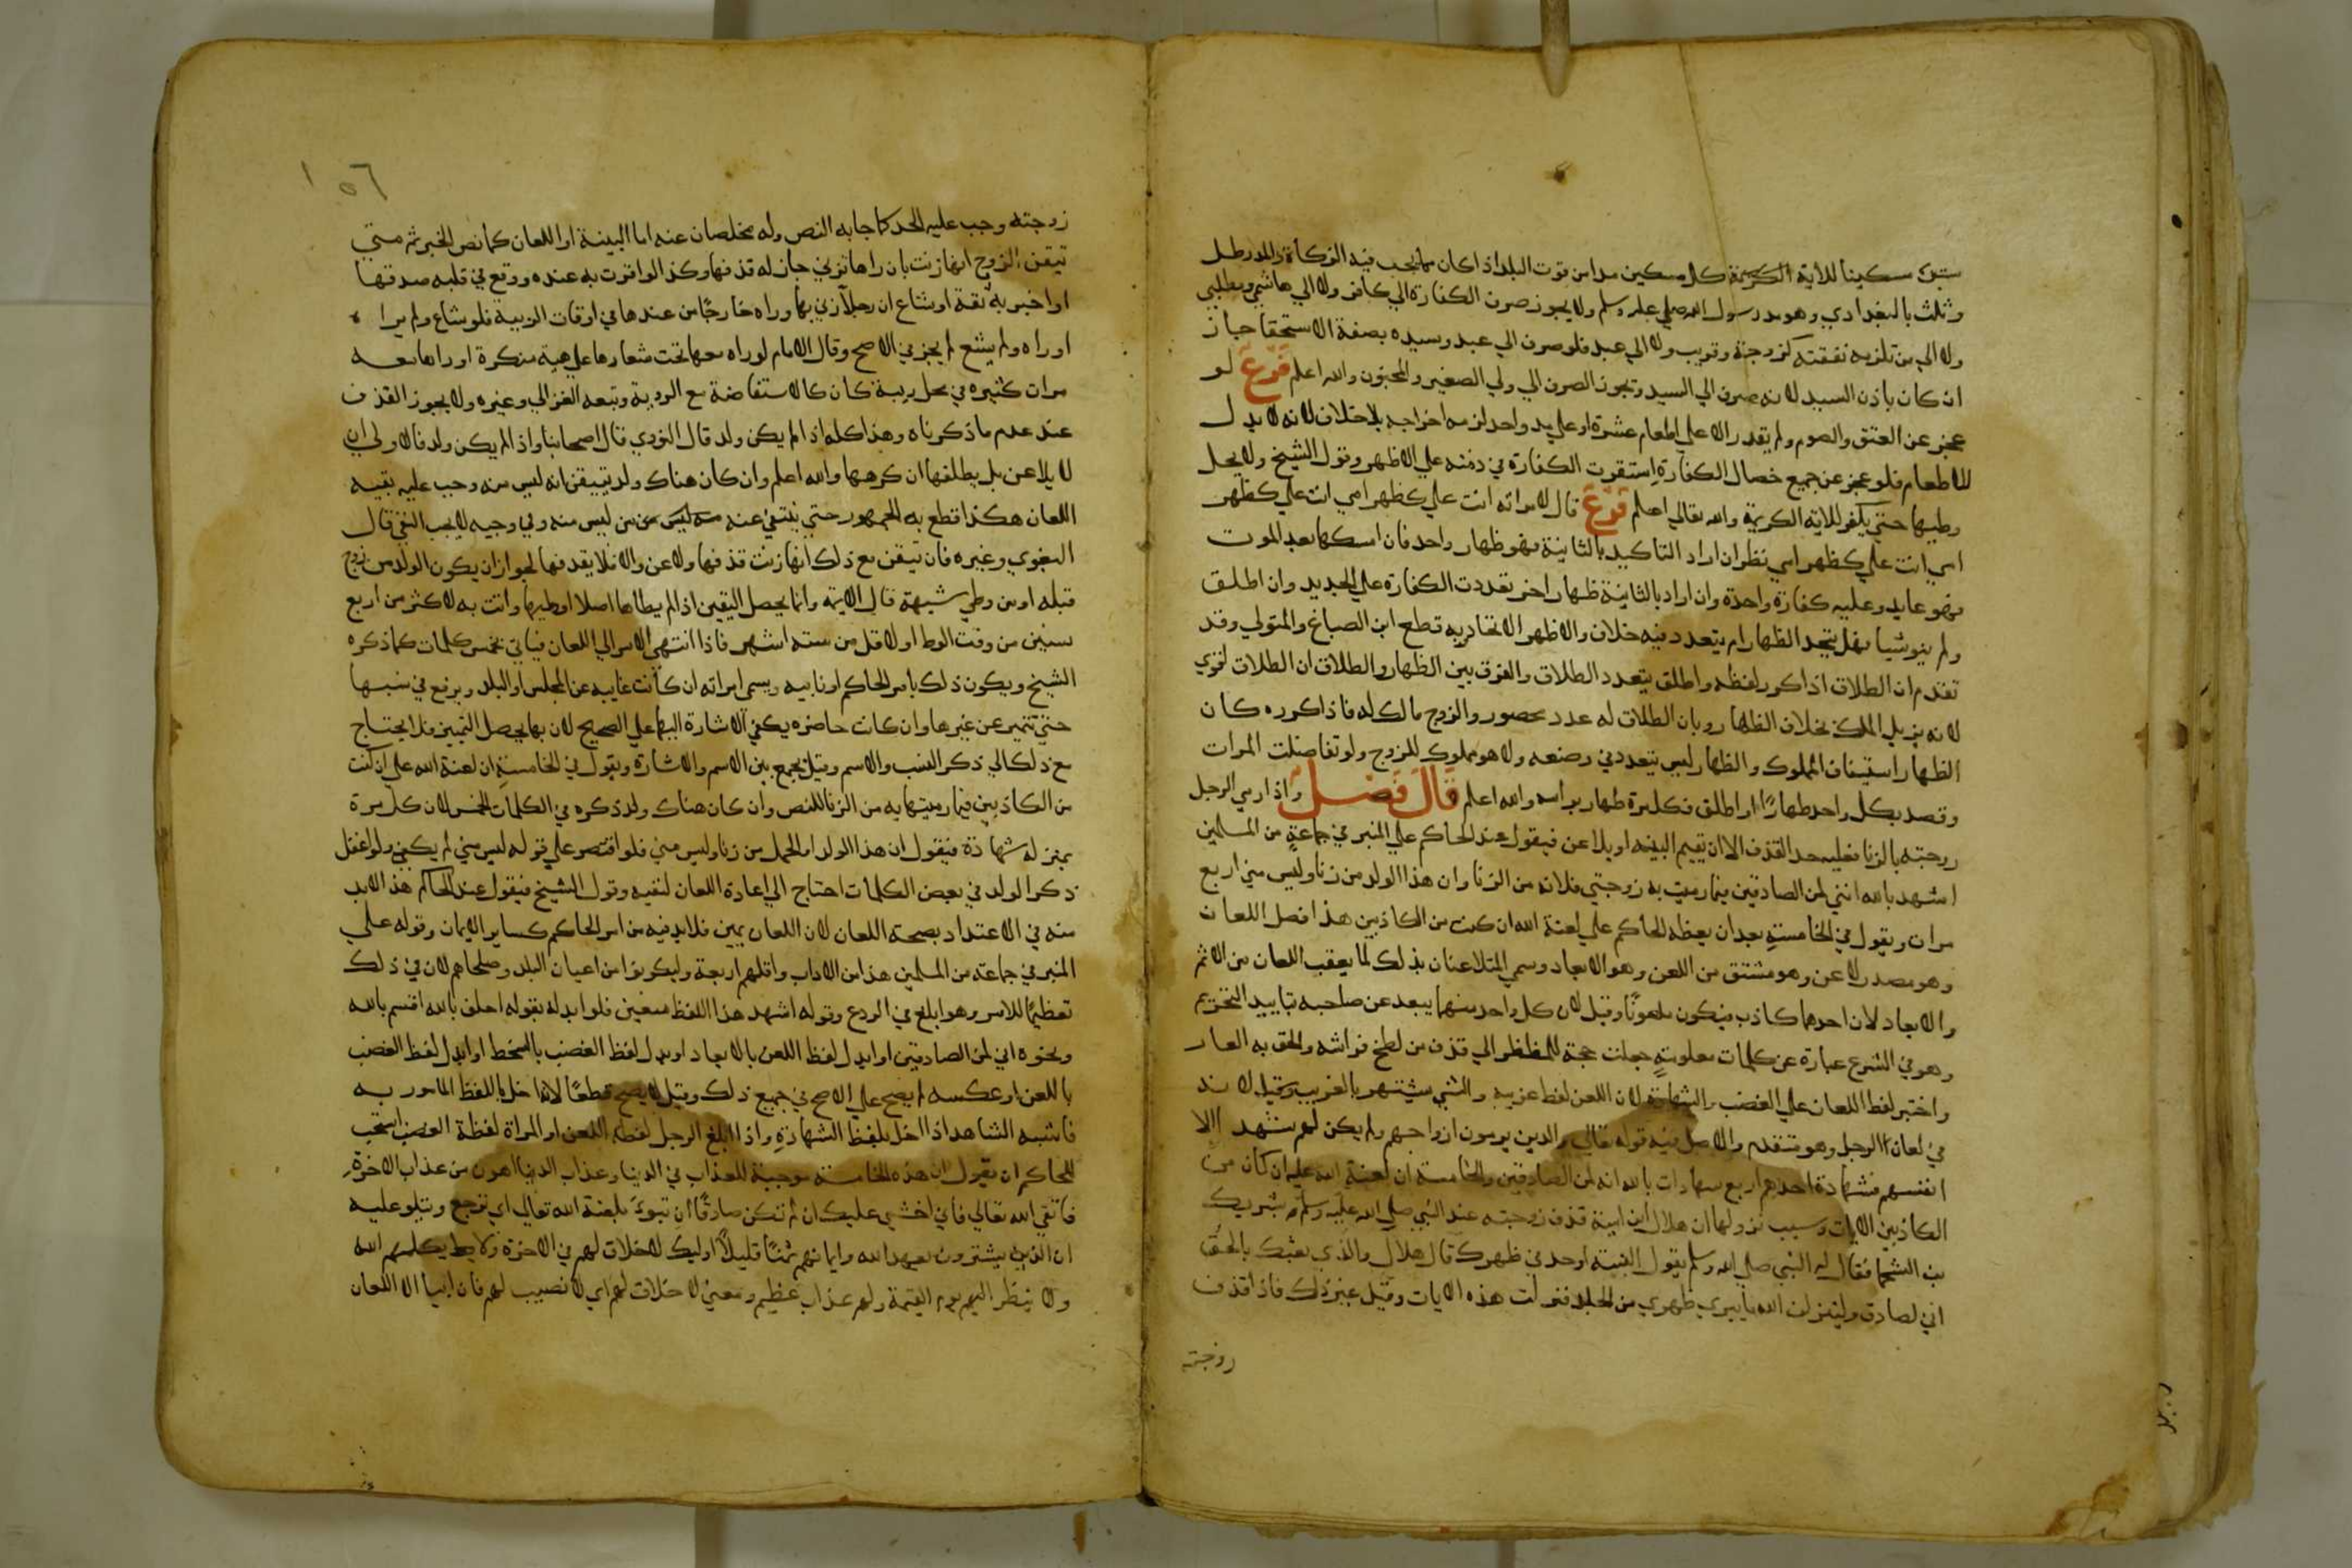 ستين مسكينا للاية الكريمة كل مسكين مدا من قوت البلد اذا كان مما يجب فيه الزكاة والمد رطل
وثلث بالبغدادي وهو مد رسول الله صلي عليه وسلم ولا يجوز صرف الكفارة الي كافر ولا الي هاشمي ومطلبي
ولا الي من تلزمه نفقته كزوجة وقريب ولا الي عبد فلو صرف الي عبد وسيده بصفة الاستحقا جاز
ان كان باذن السيد لانه صرف الي السيد ويجوز الصرف الي ولي الصغير والمجنون والله اعلم فرع لو
عجز عن العتق والصوم ولم يقدر الا علي اطعام عشرة او علي مد واحد لزمه اخراجه بلا خلاف لانه لا بدل
للاطعام فلو عجز عن جميع خصال الكفارة استقرت الكفارة في ذمته علي الاظهر وقول الشيخ ولا يحل
وطيها حتي يكفر للاية الكريمة والله تعالي اعلم فرع قال لامراته انت علي كظهر امي انت علي كظهر
امي انت علي كظهر امي نظر ان اراد التاكيد بالثانية فهو ظهار واحد فان امسكها بعد المرات
فهو عايد وعليه كفارة واحدة وان اراد بالثانية ظهار اخر تعددت الكفارة علي الجديد وان اطلق
ولم ينو شيا فهل يتحد الظهار ام يتعدد فيه خلاف والاظهر الاتحاد وبه قطع ابن الصباغ والمتولي وقد
تقدم ان الطلاق اذا كرر لفظه واطلق يتعدد الطلاق والفرق بين الظهار والطلاق ان الطلاق اقوي
لانه يزيل الملك بخلاف الظهار وبان الطلاق له عدد محصور والزوج مالك له فاذا كرره كان
الظهار استيفان المملوك والظهار ليس يتعدد في وضعه ولا هو مملوك للزوج ولو تفاصلت المرات
وقصد بكل واحد ظهارا او اطلق فكل مرة ظهار براسه والله اعلم قال فصل واذا رمي الرجل
زوجته بالزنا فعليه حد القذف الا ان يقيم البينه او يلا عن فيقول عند الحاكم علي المنبر في جماعة من المسلمين
اشهد بالله انني لمن الصادقين فيما رميت به زوجتي فلانه من الزنا وان هذا الولد من زنا وليس مني اربع
مرات ويقول في الخامسة بعد ان يعظه الحاكم علي لعنة الله ان كنت من الكاذبين هذا فصل اللعان
وهو مصدر لا عن وهو مشتق من اللعن وهو الابعاد وسمي المتلاعنان بذلك لما يعقب اللعان من الاثم
والابعاد لان احدهما كاذب فيكون ملعونا وقيل لان كل واحد منهما يبعد عن صاحبه بتاييد التحريم
وهو في الشرع عبارة عن كلمات معلومة جعلت حجة للمظطر الي قذف من لطخ فراشه والحق به العار
واختير لفظ اللعان علي الغضب والشهادة لان اللعن لفظ غريب والشي يشتهر بالغريب وقيل لانه
في لعان الرجل وهو متقدم والاصل فيه قوله تعالي والدين يرمون ازواجهم ولم يكن لهم شهدا الا
انفسهم فشهادة احدهم اربع شهادات بالله انه لمن الصادقين والخامسة ان لعنة الله عليه ان كان من
الكاذبين الايات وسبب نزولها ان هلال ابن امية قذف زوجته عند النبي صلي الله عليه وسلم بشريك
بن السحما فقال له النبي صلي الله وسلم يقول البينة او حد في ظهرك قال هلال والذي بعثك بالحق
اني لصادق ولينزلن الله ما يبري ظهري من الجلد فنزلت هذه الايات وقيل غير ذلك فاذا قذف
زوجته
١٥٦
زوجته وجب عليه الحد كما جا به النص وله مخلصان عنه اما البينة او اللعان كما نص الخبر ثم متي
تيقن الزوج انها زنت بان راها تزني جاز له قذفها وكذا لو اقرت به عنده ووقع في قلبه صدقها
او اخبر به ثقة او شاع ان رجلا زني بها وراه خارجا من عندها في اوقات الريبة فلو شاع ولم يرا
او راه ولم يشع لم يجز في الاصح وقال الامام لو راه معها تحت شعارها علي هية منكرة او راها معه
مرات كثيره في محل ريبة كان كالاستفاضة مع الروية وتبعه الغزالي وغيره ولا يجوز القذف
عند عدم ما ذكرناه وهذا كله اذا لم يكن ولد قال النووي قال اصحابنا واذا لم يكن ولد فالاولي ان
لا يلا عن بل يطلقها ان كرهها والله اعلم وان كان هناك ولد تييقن انه ليس منه وجب عليه نفيه
اللعان هكذا قطع به الجمهور حتي ينتفي عنه من ليس منه وفي وجه لا يجب النفي قال
البغوي وغيره فان تيقن مع ذلك انها زنت قذفها ولاعن والا فلا يقدفها لجواز ان يكون الولد من زوج
قبله او من وطي شبهة قال الايمة وانما يحصل اليقين اذا لم يطاها اصلا او طيها واتت به لاكثر من اربع
سنين من وقت الوطا او لاقل من ستة اشهر فاذا انتهي الامر الي اللعان فياتي بخمس كلمات كما ذكره
الشيخ ويكون ذلك بامر الحاكم او نايبه ويسمي امراته ان كانت غايبه عن المجلس او البلد ويرفع في نسبها
حتي تتميز عن غيرها وان كانت حاضره يكفي الاشارة اليها علي الصحيح لان بها يحصل التميز فلا يحتاج
مع ذلك الي ذكر النسب والاسم وقيل يجمع بين الاسم والاشارة ويقول في الخامسة ان لعنة الله علي ان كنت
من الكاذبين فيما رميتها به من الزنا للنص وان كان هناك ولد ذكره في الكلمات الخمس لان كل مرة
بمنزلة شهادة فيقول ان هذا الولد او الحمل من زنا وليس مني فلو اقتصر علي قوله ليس مني لم يكفي ولو اغفل
ذكر الولد في بعض الكلمات احتاج الي اعادة اللعان لنفيه وقول الشيخ فيقول عند الحاكم هذا لابد
منه في الاعتداد بصحة اللعان لان اللعان يمين فلابد فيه من امر الحاكم كساير الايمان وقوله علي
المنبر في جماعة من المسلمين هذا من الاداب واقلهم اربعة وليكونوا من اعيان البلد وصلحاهم لان في ذلك
تعظيما للامر وهو ابلغ في الردع وقوله اشهد هذا اللفظ متعين فلو ابدله بقوله احلف بالله اقسم بالله
ونحوه اني لمن الصادقين او ابدل لفظ اللعن بالابعاد او بدل لفظ الغضب بالسخط او ابدل لفظ الغضب
باللعن او عكسه لم يصح علي الاصح في جميع ذلك وقيل لا يصح قطعا لانه اخل باللفظ المامور به
فاشبه الشاهد اذا اخل بلفظ الشهادة واذا ابلغ الرجل لفظه اللعن او المراة لفظة الغضب استحب
للحاكم ان يقول ان هذه الخامسة موجبة للعذاب في الدنيا وعذاب الدنيا اهون من عذاب الاخرة
فاتقي الله تعالي فاني اخشي عليك ان لم تكن صادقا ان تبوء بلعنة الله تعالي اي ترجع ويتلو عليه
ان الذين يشترون بعهد الله وايمانهم ثمنا قليلا اوليك لا خلاق لهم في الاخرة ولا يكلمهم الله
ولا ينظر اليهم يوم القيمة ولهم عذاب عظيم ومعني لا خلاق لهم اي لا نصيب لهم فان ابيا الا اللعان